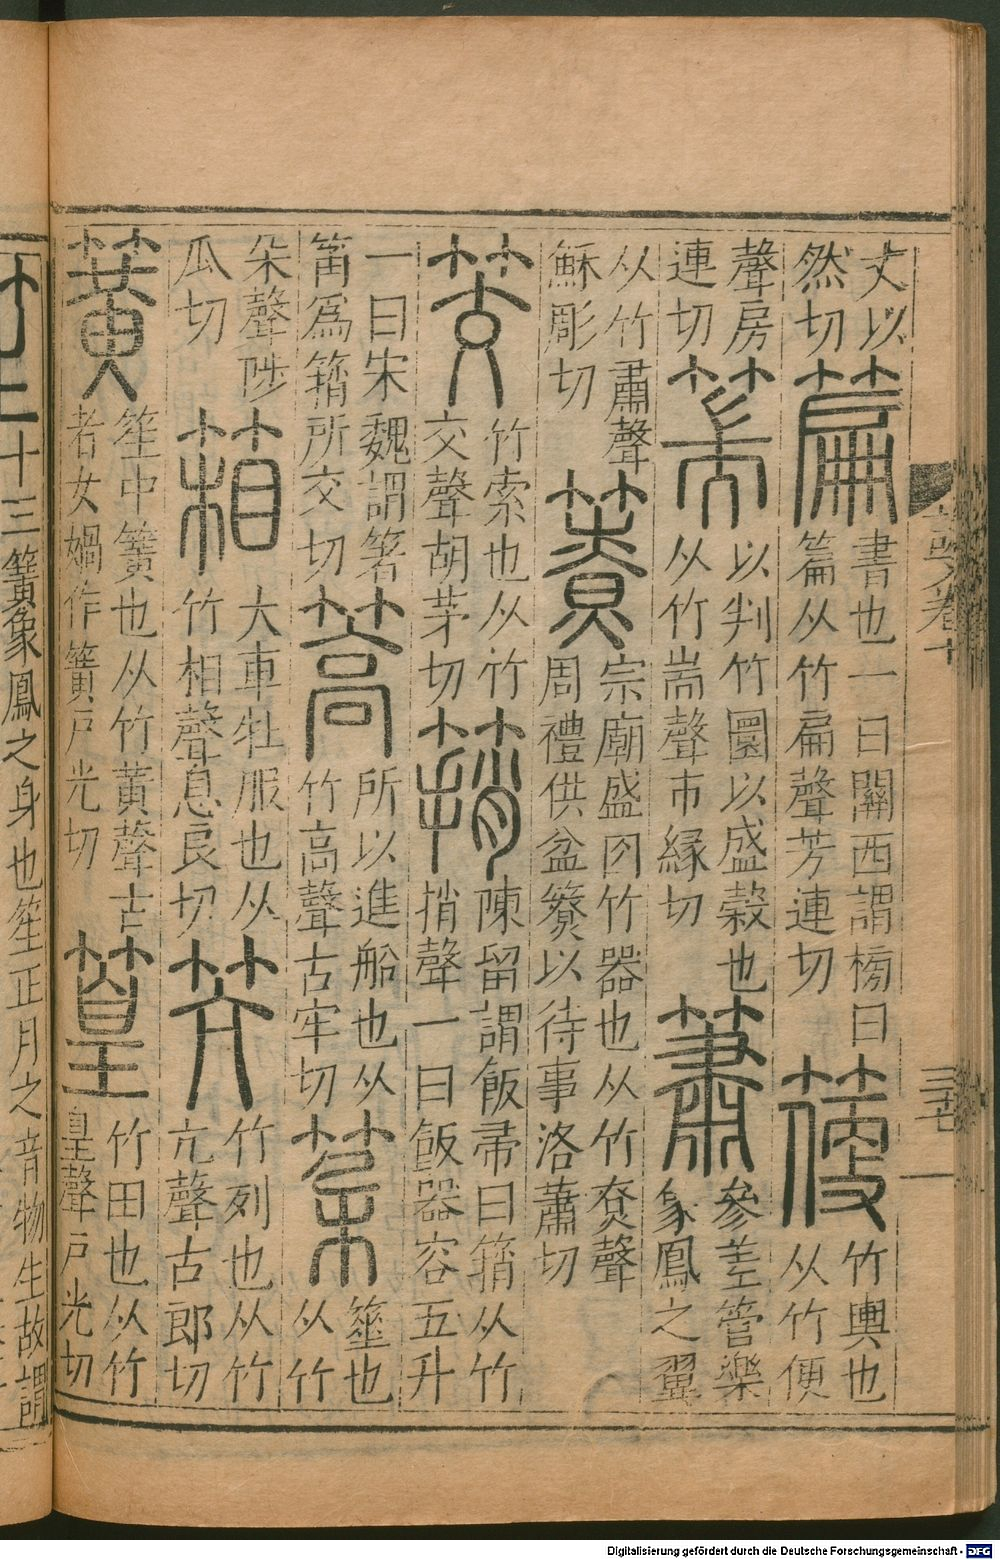 丈以
然切
篇
書也一曰關西謂榜曰
篇从竹扁聲芳連切
箯
竹輿也
从竹便
聲房
連切
篅
以判竹圜以盛穀也
从竹耑聲市緣切
簫
參差管樂
象鳳之翼
从竹肅聲
穌彫切
簝
宗廟盛肉竹器也从竹尞聲
周禮供盆簝以待事洛蕭切
筊
竹索也从竹
交聲胡茅切
䈰
陳留謂飯帚曰䈰从竹
捎聲一曰飯器容五升
一曰宋魏謂箸
筩爲䈰所交切
篙
所以進船也从
竹高聲古牢切
箠也
从竹
朵聲陟
瓜切
箱
大車牡服也从
竹相聲息良切
笐
竹列也从竹
亢聲古郎切
簧
笙中簧也从竹黃聲古
者女媧作簧戶光切
篁
竹田也从竹
皇聲戶光切
二十三簧象鳳之身也笙正月之音物生故謂
Digitalisierung gefördert durch die Deutsche Forschungsgemeinschaft - DFG